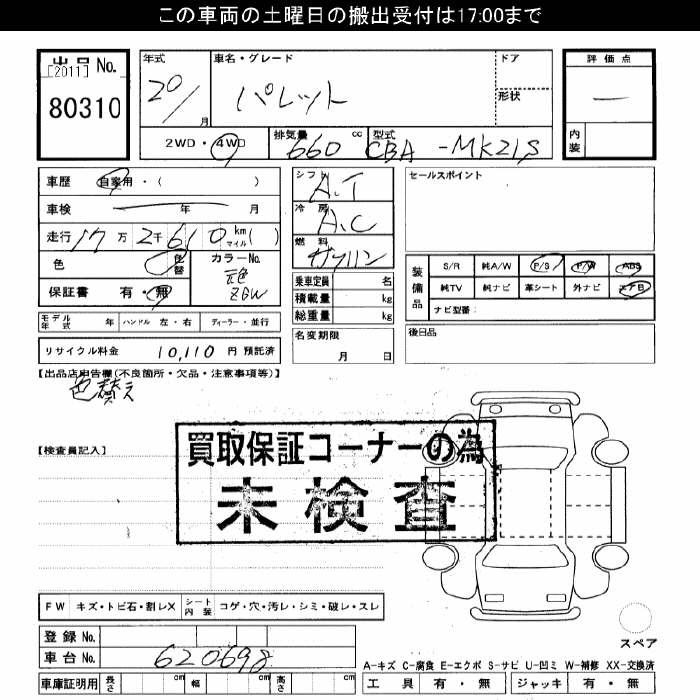 この車両の土曜日の搬出受付は17:00まで
出品 No.
[2011]
80310
年式
20/
月
車名・グレード
パレット
ドア
形状
2WD・4WD
排気量
660 cc
型式
CBA-MK21S
評価点
―
内装
車歴 自家用・( )
車検 年 月
走行 17万 2千 610 km マイル( )
色 色替
カラーNo.
ZGW
保証書 有・無
シフト
A.T
冷房
A.C
燃料
ガソリン
乗車定員 名
積載量 kg
総重量 kg
名変期限
月 日
セールスポイント
装備品
S/R 純A/W P/S P/W ABS
純TV 純ナビ 革シート 外ナビ エアB
ナビ型番:
後日品
モデル年式 年 ハンドル 左・右 ディーラー・並行
リサイクル料金 10,110 円 預託済
【出品店申告欄(不良箇所・欠品・注意事項等)】
色替え
【検査員記入】
買取保証コーナーの為
未検査
FW キズ・トビ石・割レX シート内装 コゲ・穴・汚レ・シミ・破レ・スレ
登録 No.
車台 No. 620698
車庫証明用 長さ cm 幅 cm 高さ cm
スペア
A-キズ C-腐食 E-エクボ S-サビ U-凹ミ W-補修 XX-交換済
工具 有・無 ジャッキ 有・無